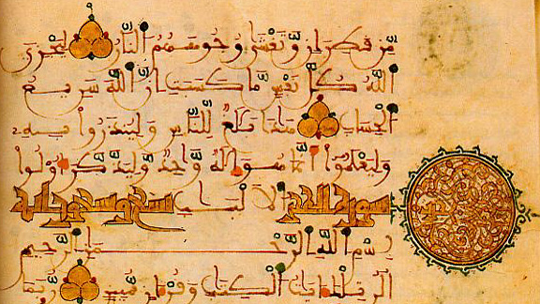 مِّن قَطِرَانٍ وَتَغْشَىٰ وُجُوهَهُمُ النَّارُ لِيَجْزِيَ
اللَّهُ كُلَّ نَفْسٍ مَّا كَسَبَتْ إِنَّ اللَّهَ سَرِيعُ
الْحِسَابِ هَٰذَا بَلَٰغٌ لِّلنَّاسِ وَلِيُنذَرُوا بِهِ
وَلِيَعْلَمُوا أَنَّمَا هُوَ إِلَٰهٌ وَٰحِدٌ وَلِيَذَّكَّرَ أُولُوا
سورة الحجر الْأَلْبَٰبِ تسع وتسعون اية
بِسْمِ اللَّهِ الرَّحْمَٰنِ الرَّحِيمِ
الر تِلْكَ ءَايَٰتُ الْكِتَٰبِ وَقُرْءَانٍ مُّبِينٍ رُّبَمَا